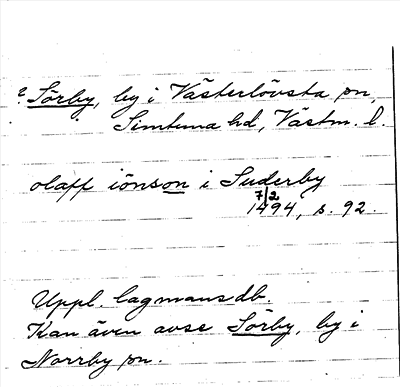 ? Sörby, by i Västerlövsta sn,
Simtuna hd, Västm. l.
olaff iönson i Suderby
7/2
1494, s. 92.
Uppl. lagmansdb.
Kan även avse Sörby, by i
Norrby sn.